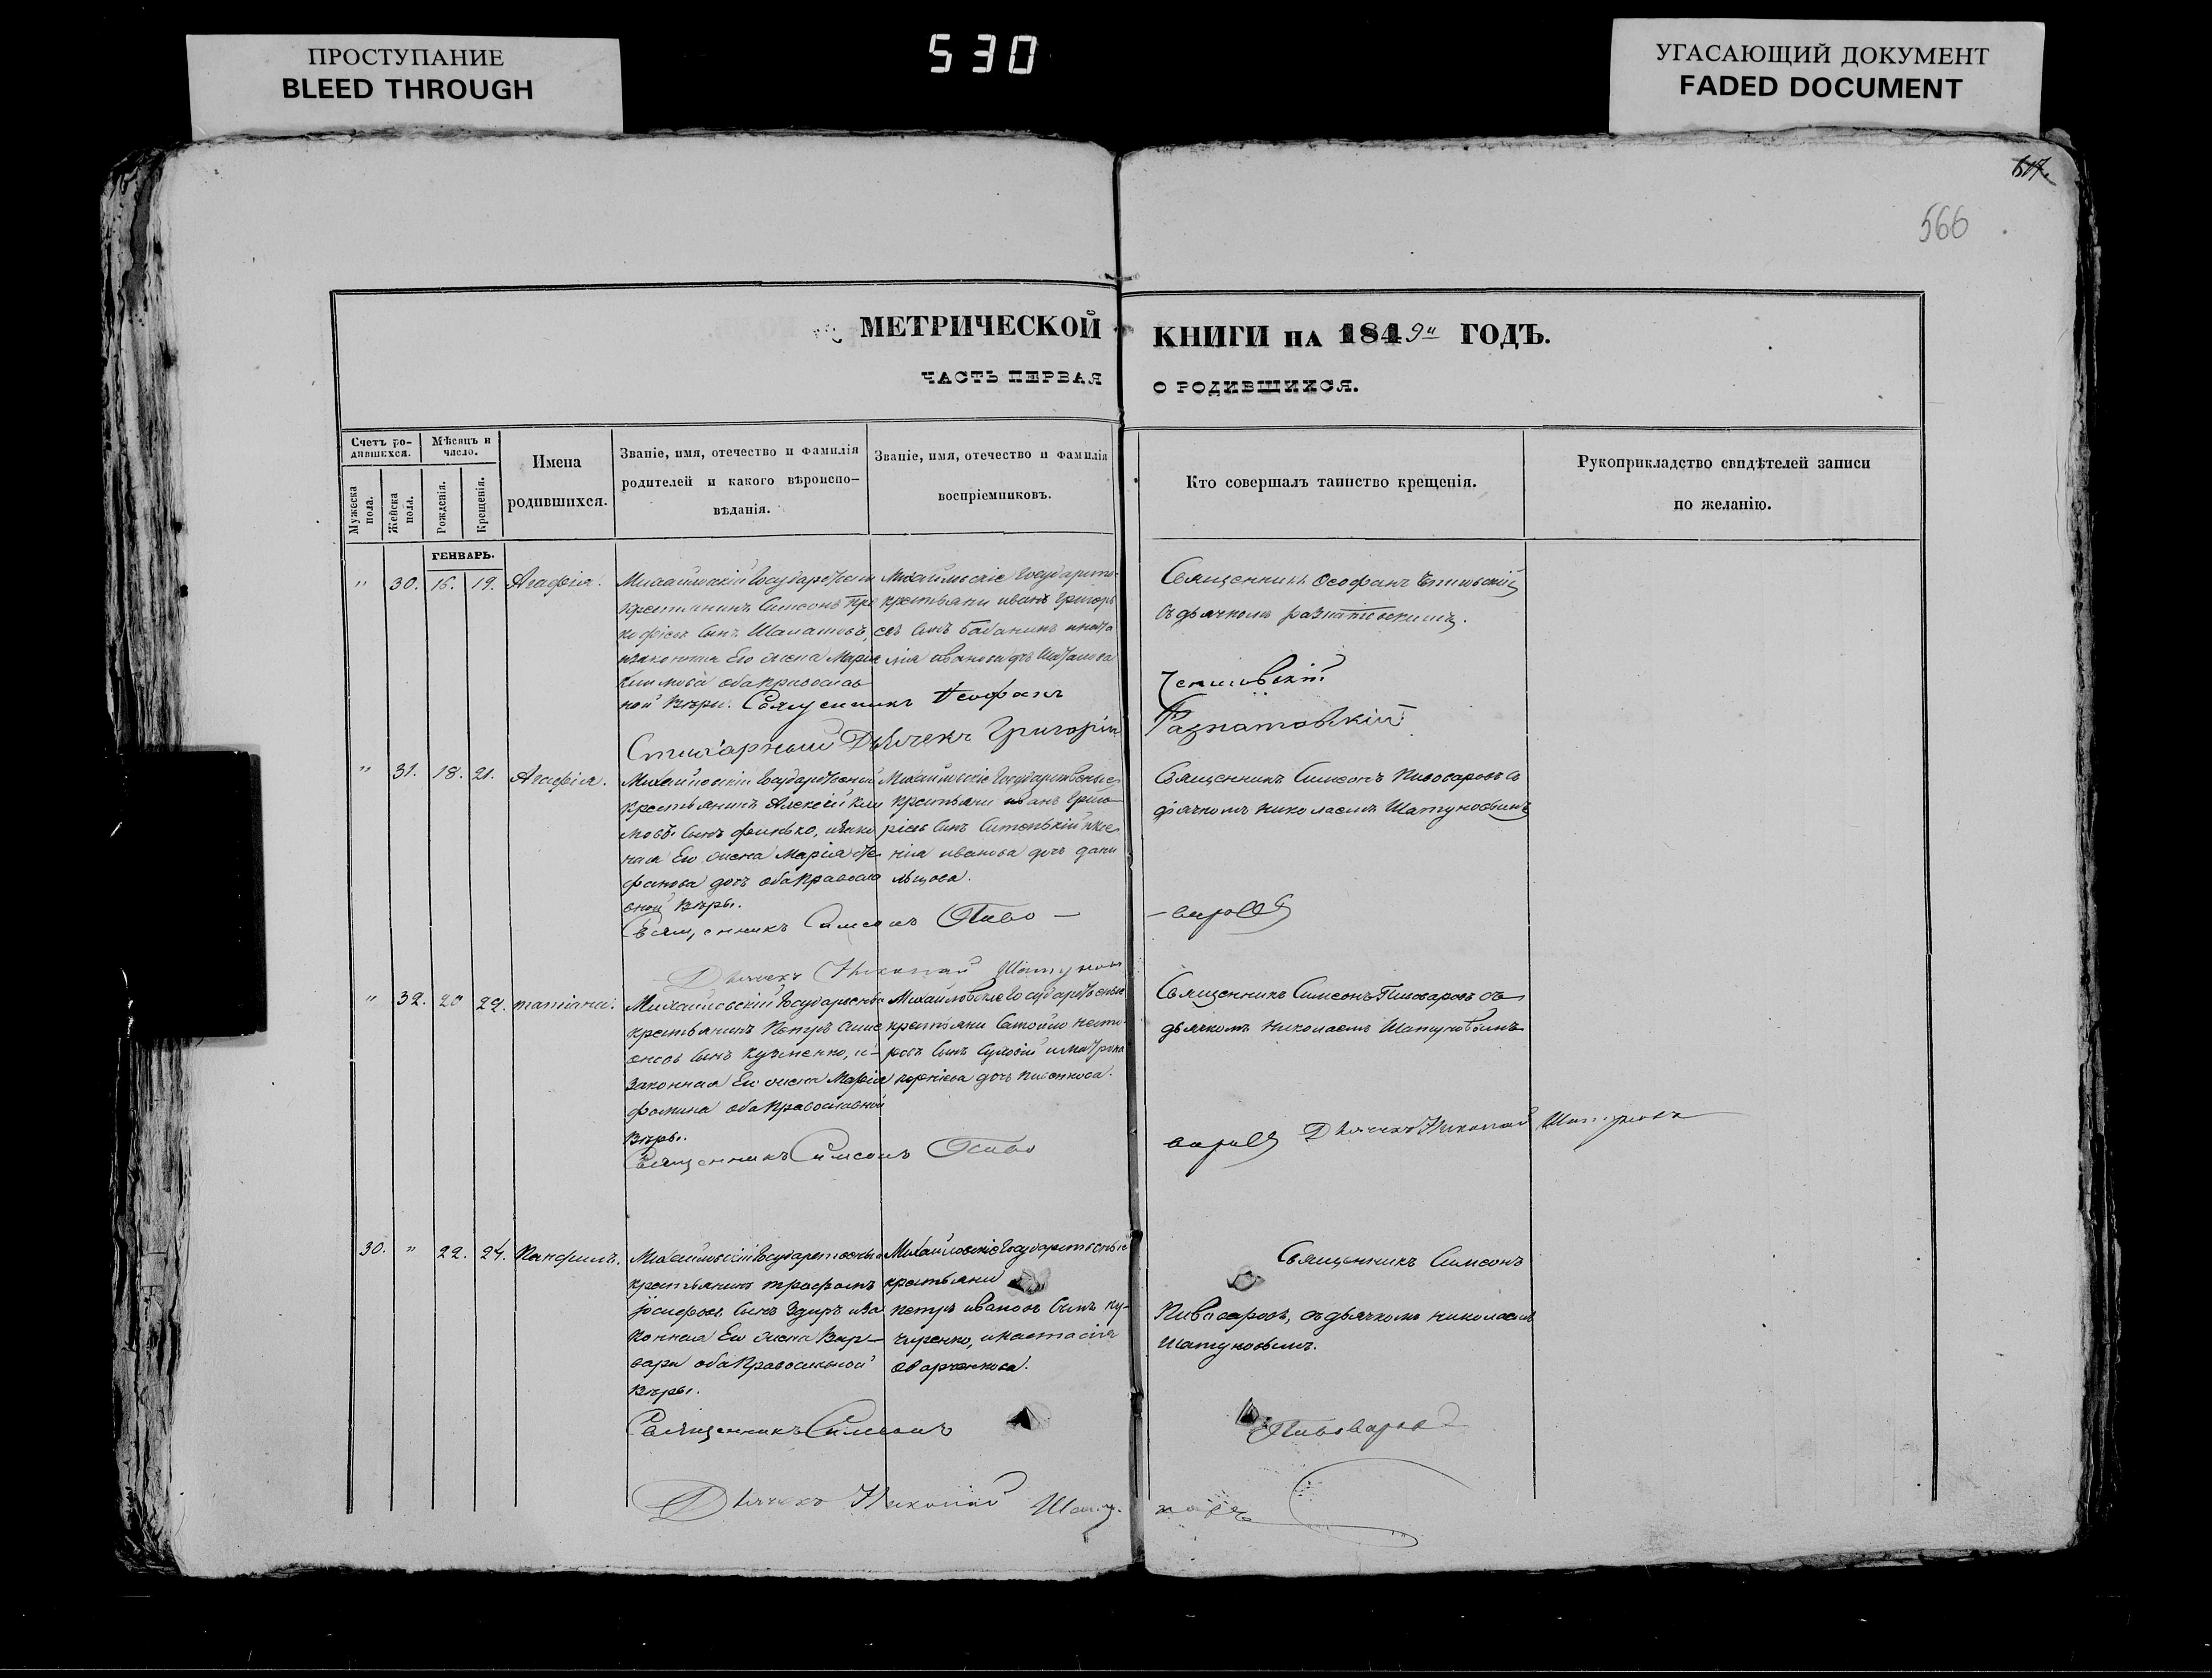 ПРОСТУПАНИЕ
BLEED THROUGH
530
УГАСАЮЩИЙ ДОКУМЕНТ
FADED DOCUMENT
617.
566
МЕТРИЧЕСКОЙ КНИГИ НА 1849й ГОДЪ.
ЧАСТЬ ПЕРВАЯ О РОДИВШИХСЯ.
Счетъ родившихся.
Мужеска пола.
Женска пола.
Мѣсяцъ и число.
Рожденія.
Крещенія.
Имена родившихся.
Званіе, имя, отечество и фамилія
родителей и какого вѣроиспо-
вѣданія.
Званіе, имя, отечество и фамилія
воспріемниковъ.
Кто совершалъ таинство крещенія.
Рукоприкладство свидѣтелей записи
по желанію.
ГЕНВАРЬ.
" 30. 16. 19. Агафія.
Михайловскій Государствен
крестьянинъ Симеонъ Про
кофіевъ сынъ
изаконная Его жена Марія
Климова оба православ
ной Вѣры. Священникъ Ѳеофанъ
Стихарный Дьячекъ Григорій
Михайловскіе Государств
крестьяни иванъ Григорь
евъ сынъ Бабанинъ
иванова дочь
Священникъ Ѳеофанъ
съ дьячкомъ Разнатовскимъ.
Разнатовскій
" 31. 18. 21. Агафія.
Михайловскій Государственный
крестьянинъ Алексій Кли
мовъ сынъ Финько, изако
ная Его жена Марія Сте
фанова дочь оба Правосла
вной Вѣры.
Священникъ Симеонъ Пиво —
Дьячекъ Николай Шатуновъ
Михайловскіе Государственые
крестьяни иванъ Григо
ріевъ сынъ Ситенькій иксе
нія иванова дочь дани
льцова.
Священникъ Симеонъ Пивоваровъ съ
дьячкомъ Николаемъ Шатуновымъ
— варовъ
" 32. 20 22. татіана.
Михайловскій Государствен
крестьянинъ Петръ Симе
оновъ сынъ Кузменко, и-
законная Его жена Марія
фомина оба Православной
Вѣры.
Священникъ Симеонъ Пиво
Михайловскіе Государственые
крестьяни
ровъ сынъ Сулозій иматрона
корніева дочь
Священникъ Симеонъ Пивоваровъ съ
дьячкомъ Николаемъ Шатуновымъ
варовъ Дьячекъ Николай Шатуновъ
30. " 22. 24. Панфилъ.
Михайловскій Государственый
крестьянинъ трофимъ
іосифовъ сынъ Здиръ иза
конная Его жена Вар-
вара оба Православной
Вѣры.
Священникъ Симеонъ
Дьячекъ Николай Шату-
Михайловскіе Государственые
крестьяни
петръ ивановъ сынъ Ку-
черенко, инастасія
оварченкова.
Священникъ Симеонъ
Пивоваровъ, съ дьячкомъ николаемъ
Шатуновымъ.
Пивоваровъ
новъ